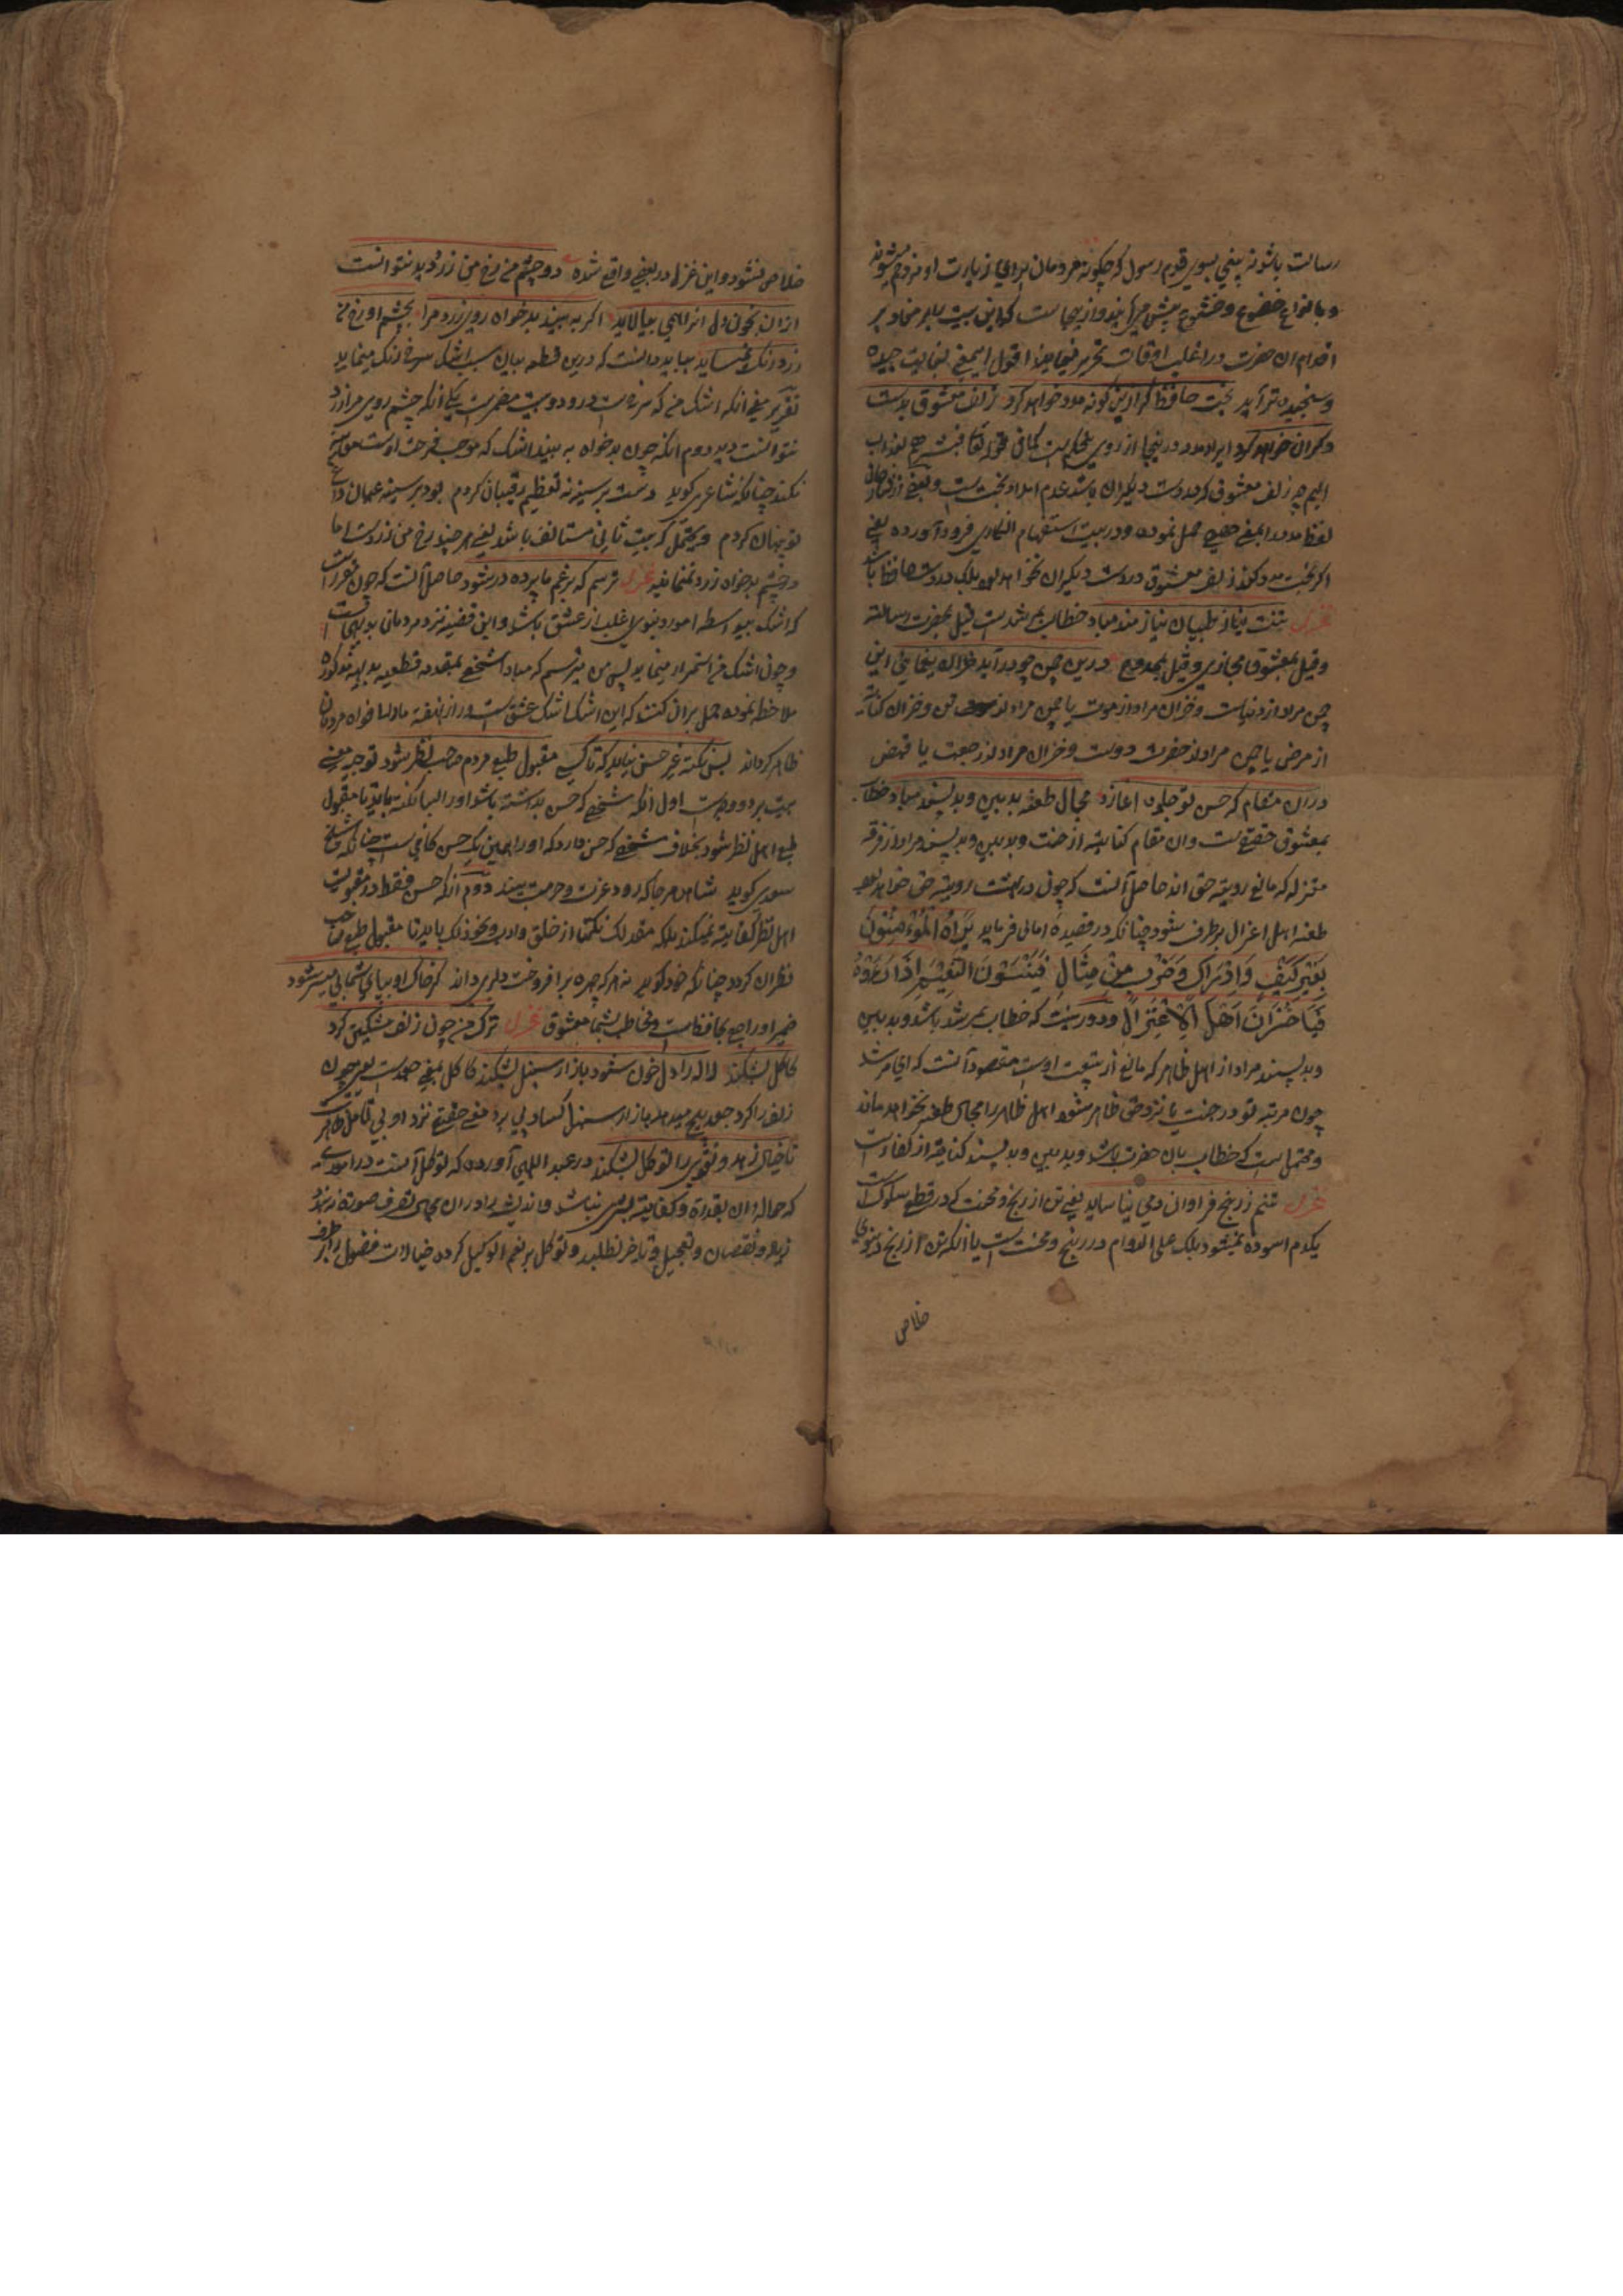 رسالت باشد نه یعنی بسوی قوم رسول که چکونه مردمان برای زیارت او
و بانواع خضوع و خشوع پیش و ازینجاست که این بیت بر
اقدام ان حضرت در اغلب اوقات تحریر اقول این معنی بغایت چیده
و سنجیده تر آید بخت حافظ کر ازین کونه مدد خواهد کرد زلف معشوق بدست
دکران خواهد بود ایراد مدد درینجا از روی تحکم است کما فی قوله تعالی فبشرهم بعذاب
الیم چه زلف معشوق که بدست دیکران باشد عدم امداد بخت است و بعضی از
لفظ مدد را بمعنی حمل نموده و در بیت استفهام انکاری فرود آورده یعنی
اکر بخت مدد کند زلف معشوق در دست دیکران نخواهد بود بلکه در دست حافظ باشد
غزل تنت بناز طبیبان نیازمند مباد خطاب بمرشد است قیل بحضرت رسالت
و قیل بمعشوق مجازی و قیل بممدوح درین چمن چو در آید خزان بیغمایی این
چمن مراد از دنیاست و خزان مراد از موت یا چمن مراد از تن و خزان کنایه
از مرض یا چمن مراد از حضرت دوست و خزان مراد از رجعت یا قبض
در ان مقام که حسن تو جلوه اغازد مجال طعنه بدبین و بدپسند مباد خطاب
بمعشوق حقیقیست و ان مقام کنایه از جنت و بدبین و بدپسند مراد از فرقه
معتزله که مانع رویة حق اند حاصل آنست که چون در بهشت رویة حق خواهد بود
طعنه اهل اعتزال برطرف شود چنانکه در قصیده امالی فرماید یَرَاهُ الْمُؤْمِنُوْنَ
بِغَیْرِ کَیْفٍ وَاِدْرَاکٍ وَضَرْبٍ مِنْ مِثَالٍ فَیَنْسَوْنَ النَّعِیْمَ اِذَا رَاَوْهُ
فَیَا خُسْرَانَ اَهْلِ الْاِعْتِزَالِ و دور نیست که خطاب بمرشد باشد و بدبین
و بدپسند مراد از اهل ظاهر که مانع از بیعت اوست مقصود آنست که ای مرشد
چون مرتبه تو در جنت یا نزد حق ظاهر شود اهل ظاهر را مجال طعنه نخواهد ماند
و محتمل است که خطاب بان حضرت باشد و بدبین و بدپسند کنایه از کفار است
غزل تنم ز رنج فراوان دمی نیاساید یعنی تن از رنج و محنت که در قطع سلوک است
یکدم اسوده نمیشود بلکه علی الدوام در رنج و محنت است یا انکه تن از رنج دنیوی
خلاص
خلاص نشود و این غزل در بعضی واقع شده دو چشم من رخ من زرد دید نتوانست
ازان بخون دل انرا همی بیالاید اکر به بیند بدخواه روی زرد مرا بچشم او رخ من
زرد رنک ننماید بباید دانست که درین قطعه بیان سبب اشک سرخ رنک مینماید
تقریر معنی آنکه اشک من که سرخ است درو دو سبب مضمر است یکی آنکه چشم روی مرا زرد
نتوانست دید دوم انکه چون بدخواه به بیند اشک که موجب فرحت اوست معاینه
نکند چنانکه شاعری کوید دست بر سینه نه تعظیم رقیبان کردم بود بر سینه عیان داغ
تو پنهان کردم و یحتمل که بیت ثانی مستانف باشد یعنی هر چند رخ من زرد است اما
در چشم بدخواه زرد ننماید غزل ترسم که اشک در غم ما پرده در شود حاصل آنست که چون مقرر است
که اشک بیواسطه امور دنیوی اغلب از عشق باشد و این قضیه نزد مردمان بدیهی است
و چون اشک من استمرار مینماید پس من میترسم که مبادا شخصی بمقدمه قطعیه بدیهیه مذکوره
ملاحظه نموده حمل بران کند که این اشک اشک عشق است و راز نهفته ما را خواه مردمان
ظاهر کرداند بس نکته غیر حسن بباید که تا کسی مقبول طبع مردم صاحب نظر شود توجیه معنی
بیت بر دو وجه است اول انکه شخصی که حسن نداشته باشد او را بسا نکته باید تا مقبول
طبع اهل نظر شود بخلاف شخصی که حسن دارد که او را همین یک حسن کافی است چنانکه شیخ
سعدی کوید شاهد هر جا که رود عزت و حرمت بیند دوم آنکه حسن فقط در مقبولیت
اهل نظر کفایت نمیکند بلکه مقدار نکتها از خلق و ادب و نحو ذلک باید تا مقبول طبع صاحب
نظران کردد چنانکه خود کوید نه هر که چهره برافروخت دلبری داند کر خاک او بپای شما پی سپر شود
ضمیر او راجع بحافظ است و مخاطب بشما معشوق غزل ترک من چون زلف مشکین کرد
کاکل بشکند لاله را دل خون شود بازار سنبل بشکند کاکل بمعنی جعد است یعنی چون
زلف را کرد جعد پیچ میدهد بازار سنبل کساد پذیرد معنی حقیقی نزد اولی التامل ظاهر است
تا خیال زهد و تقوی را توکل بشکند در عبد اللهی آورده که توکل آنست در امور
که حواله ان بقدرة و کفایت بشری نباشد و اندیشه را در ان مجال تصرف صورة نبندد
زیاده و نقصان و تعجیل و تاخیر نطلبد و توکل بر نعم الوکیل کرده خیالات فضول را برطرف